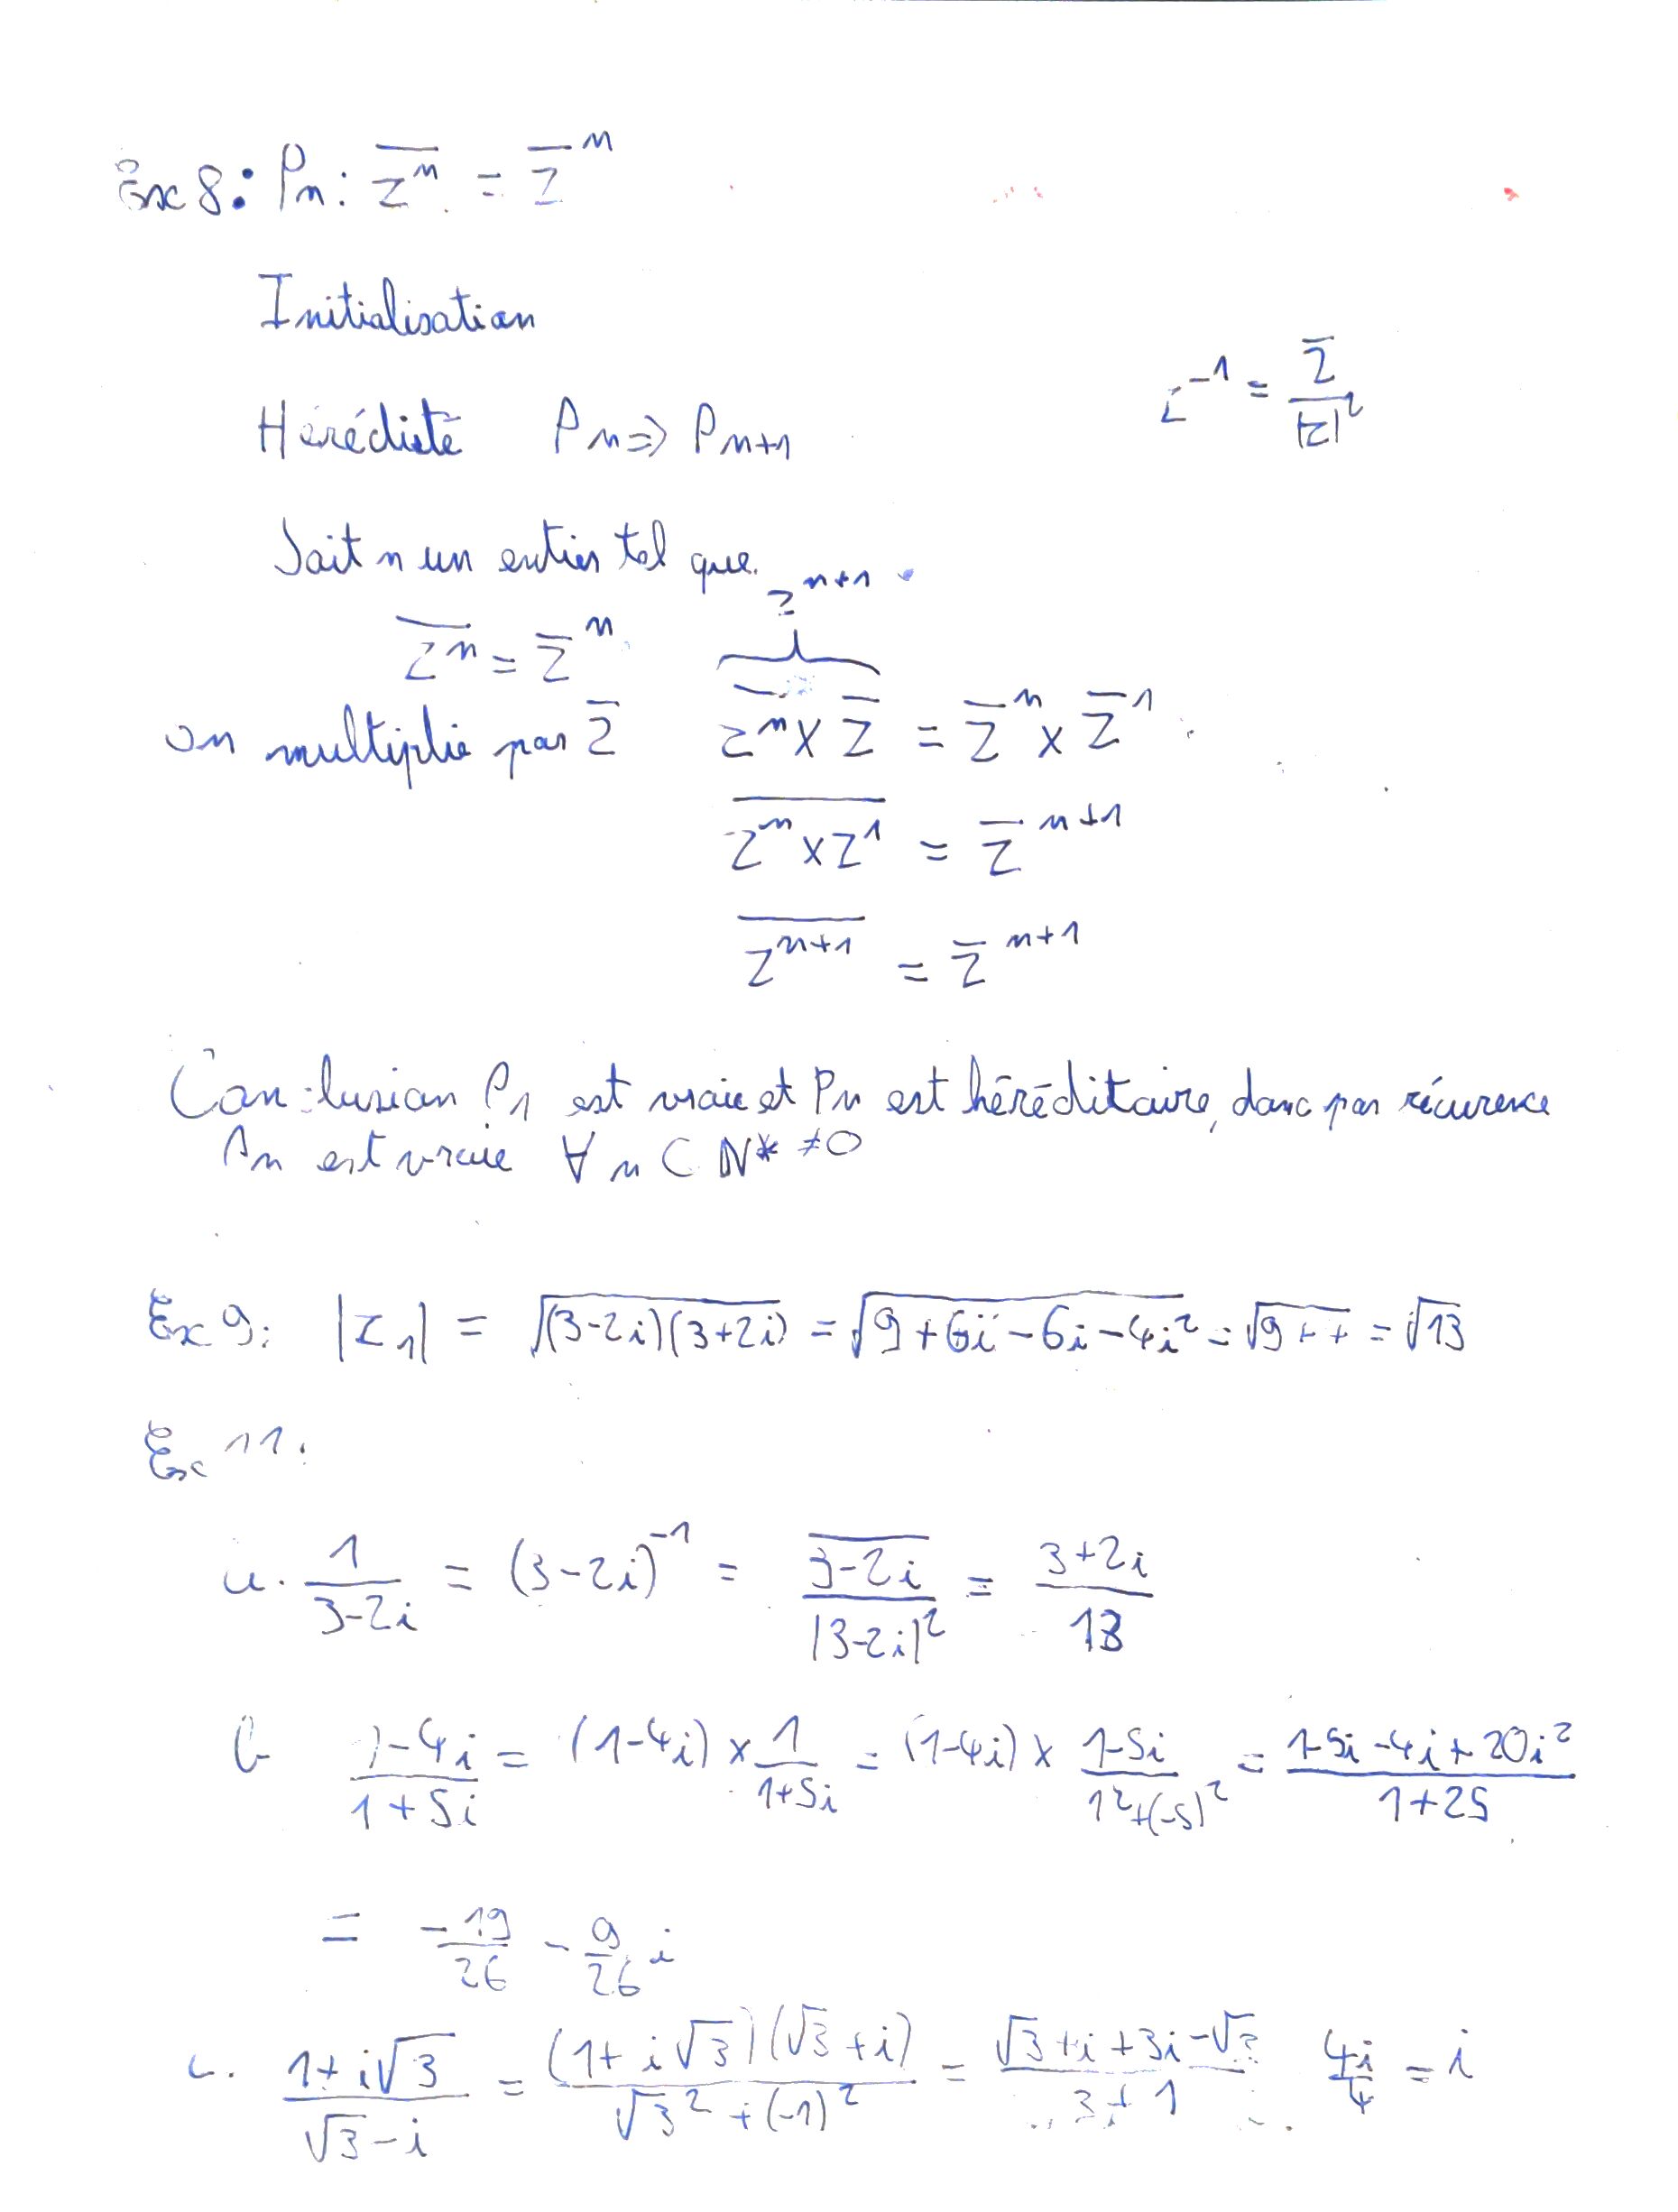 Ex 8: Pn: \overline{z^n} = \overline{z}^n
Initialisation
z^{-1} = \frac{\overline{z}}{|z|^2}
Hérédité Pn ⇒ Pn+1
Soit n un entier tel que
\overline{z^n} = \overline{z}^n
z^{n+1}
on multiplie par \overline{z} \overline{z^n} × \overline{z} = \overline{z}^n × \overline{z}^1
\overline{z^n × z^1} = \overline{z}^{n+1}
\overline{z^{n+1}} = \overline{z}^{n+1}
Conclusion P1 est vraie et Pn est héréditaire, donc par récurence
Pn est vraie ∀ n ⊂ N* ≠0
Ex 9: |z_1| = \sqrt{(3-2i)(3+2i)} = \sqrt{9+6i-6i-4i^2} = \sqrt{9++} = \sqrt{13}
Ex 11:
a. \frac{1}{3-2i} = (3-2i)^{-1} = \frac{\overline{3-2i}}{|3-2i|^2} = \frac{3+2i}{13}
b \frac{1-4i}{1+5i} = (1-4i) × \frac{1}{1+5i} = (1-4i) × \frac{1-5i}{1^2+(-5)^2} = \frac{1-5i-4i+20i^2}{1+25}
= \frac{-19}{26} - \frac{9}{26}i
c. \frac{1+i\sqrt{3}}{\sqrt{3}-i} = \frac{(1+i\sqrt{3})(\sqrt{3}+i)}{\sqrt{3}^2+(-1)^2} = \frac{\sqrt{3}+i+3i-\sqrt{3}}{3+1} \frac{4i}{4} = i